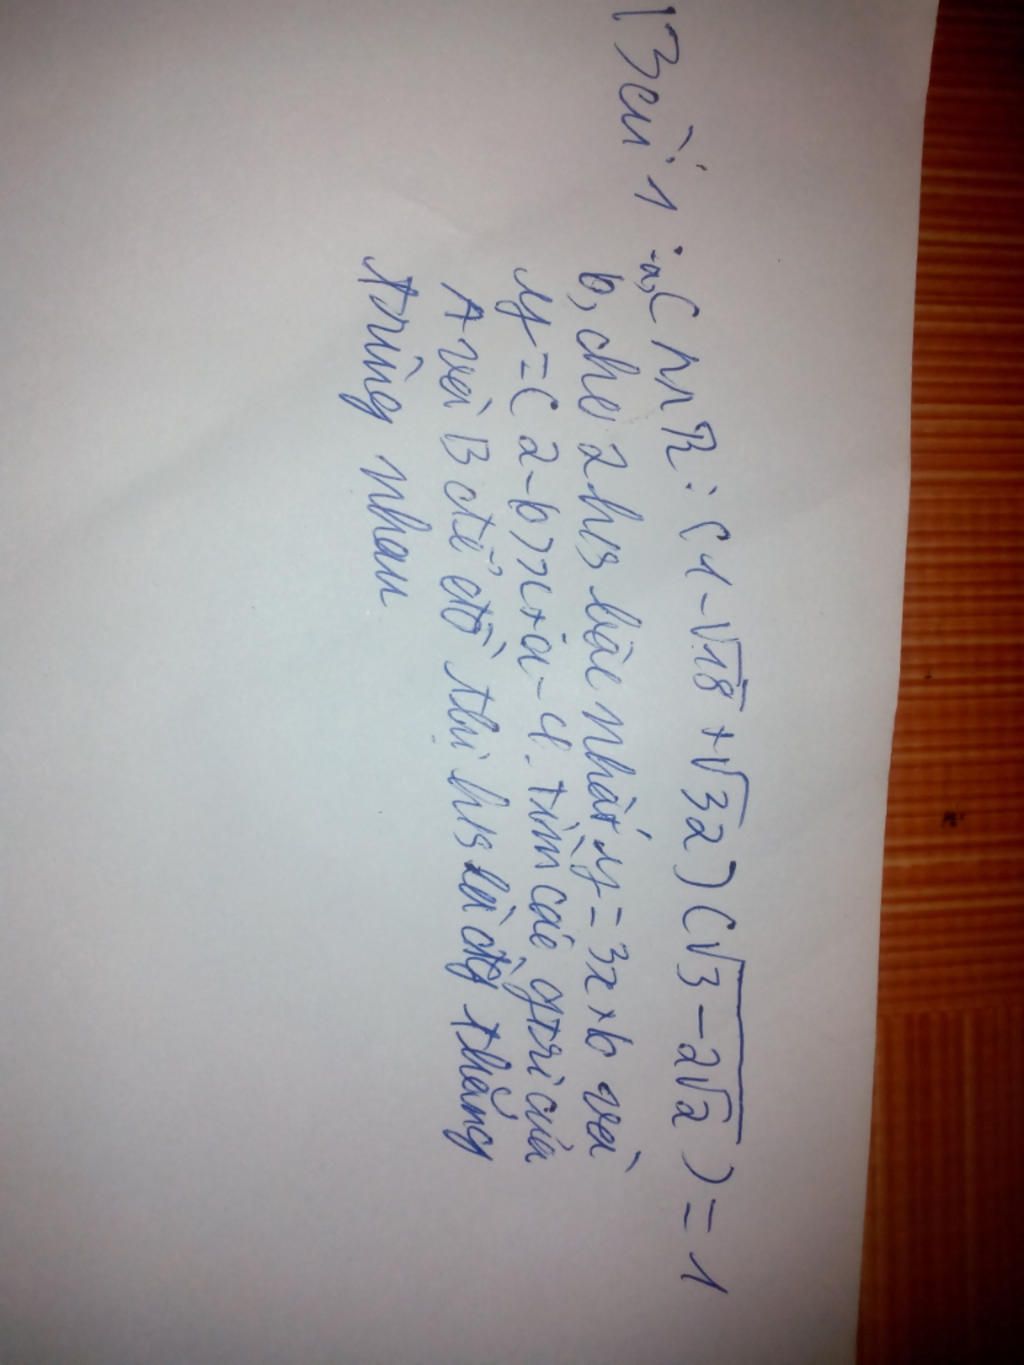 Bài 1: a, CMR: (1-√18+√32)(√3-2√2) = 1
b, cho 2 hs bậc nhất y=3x+b và
y=(2-b)x+a-4. tìm các gtri của
A và B để đồ thị hs là đtg thẳng
trùng nhau